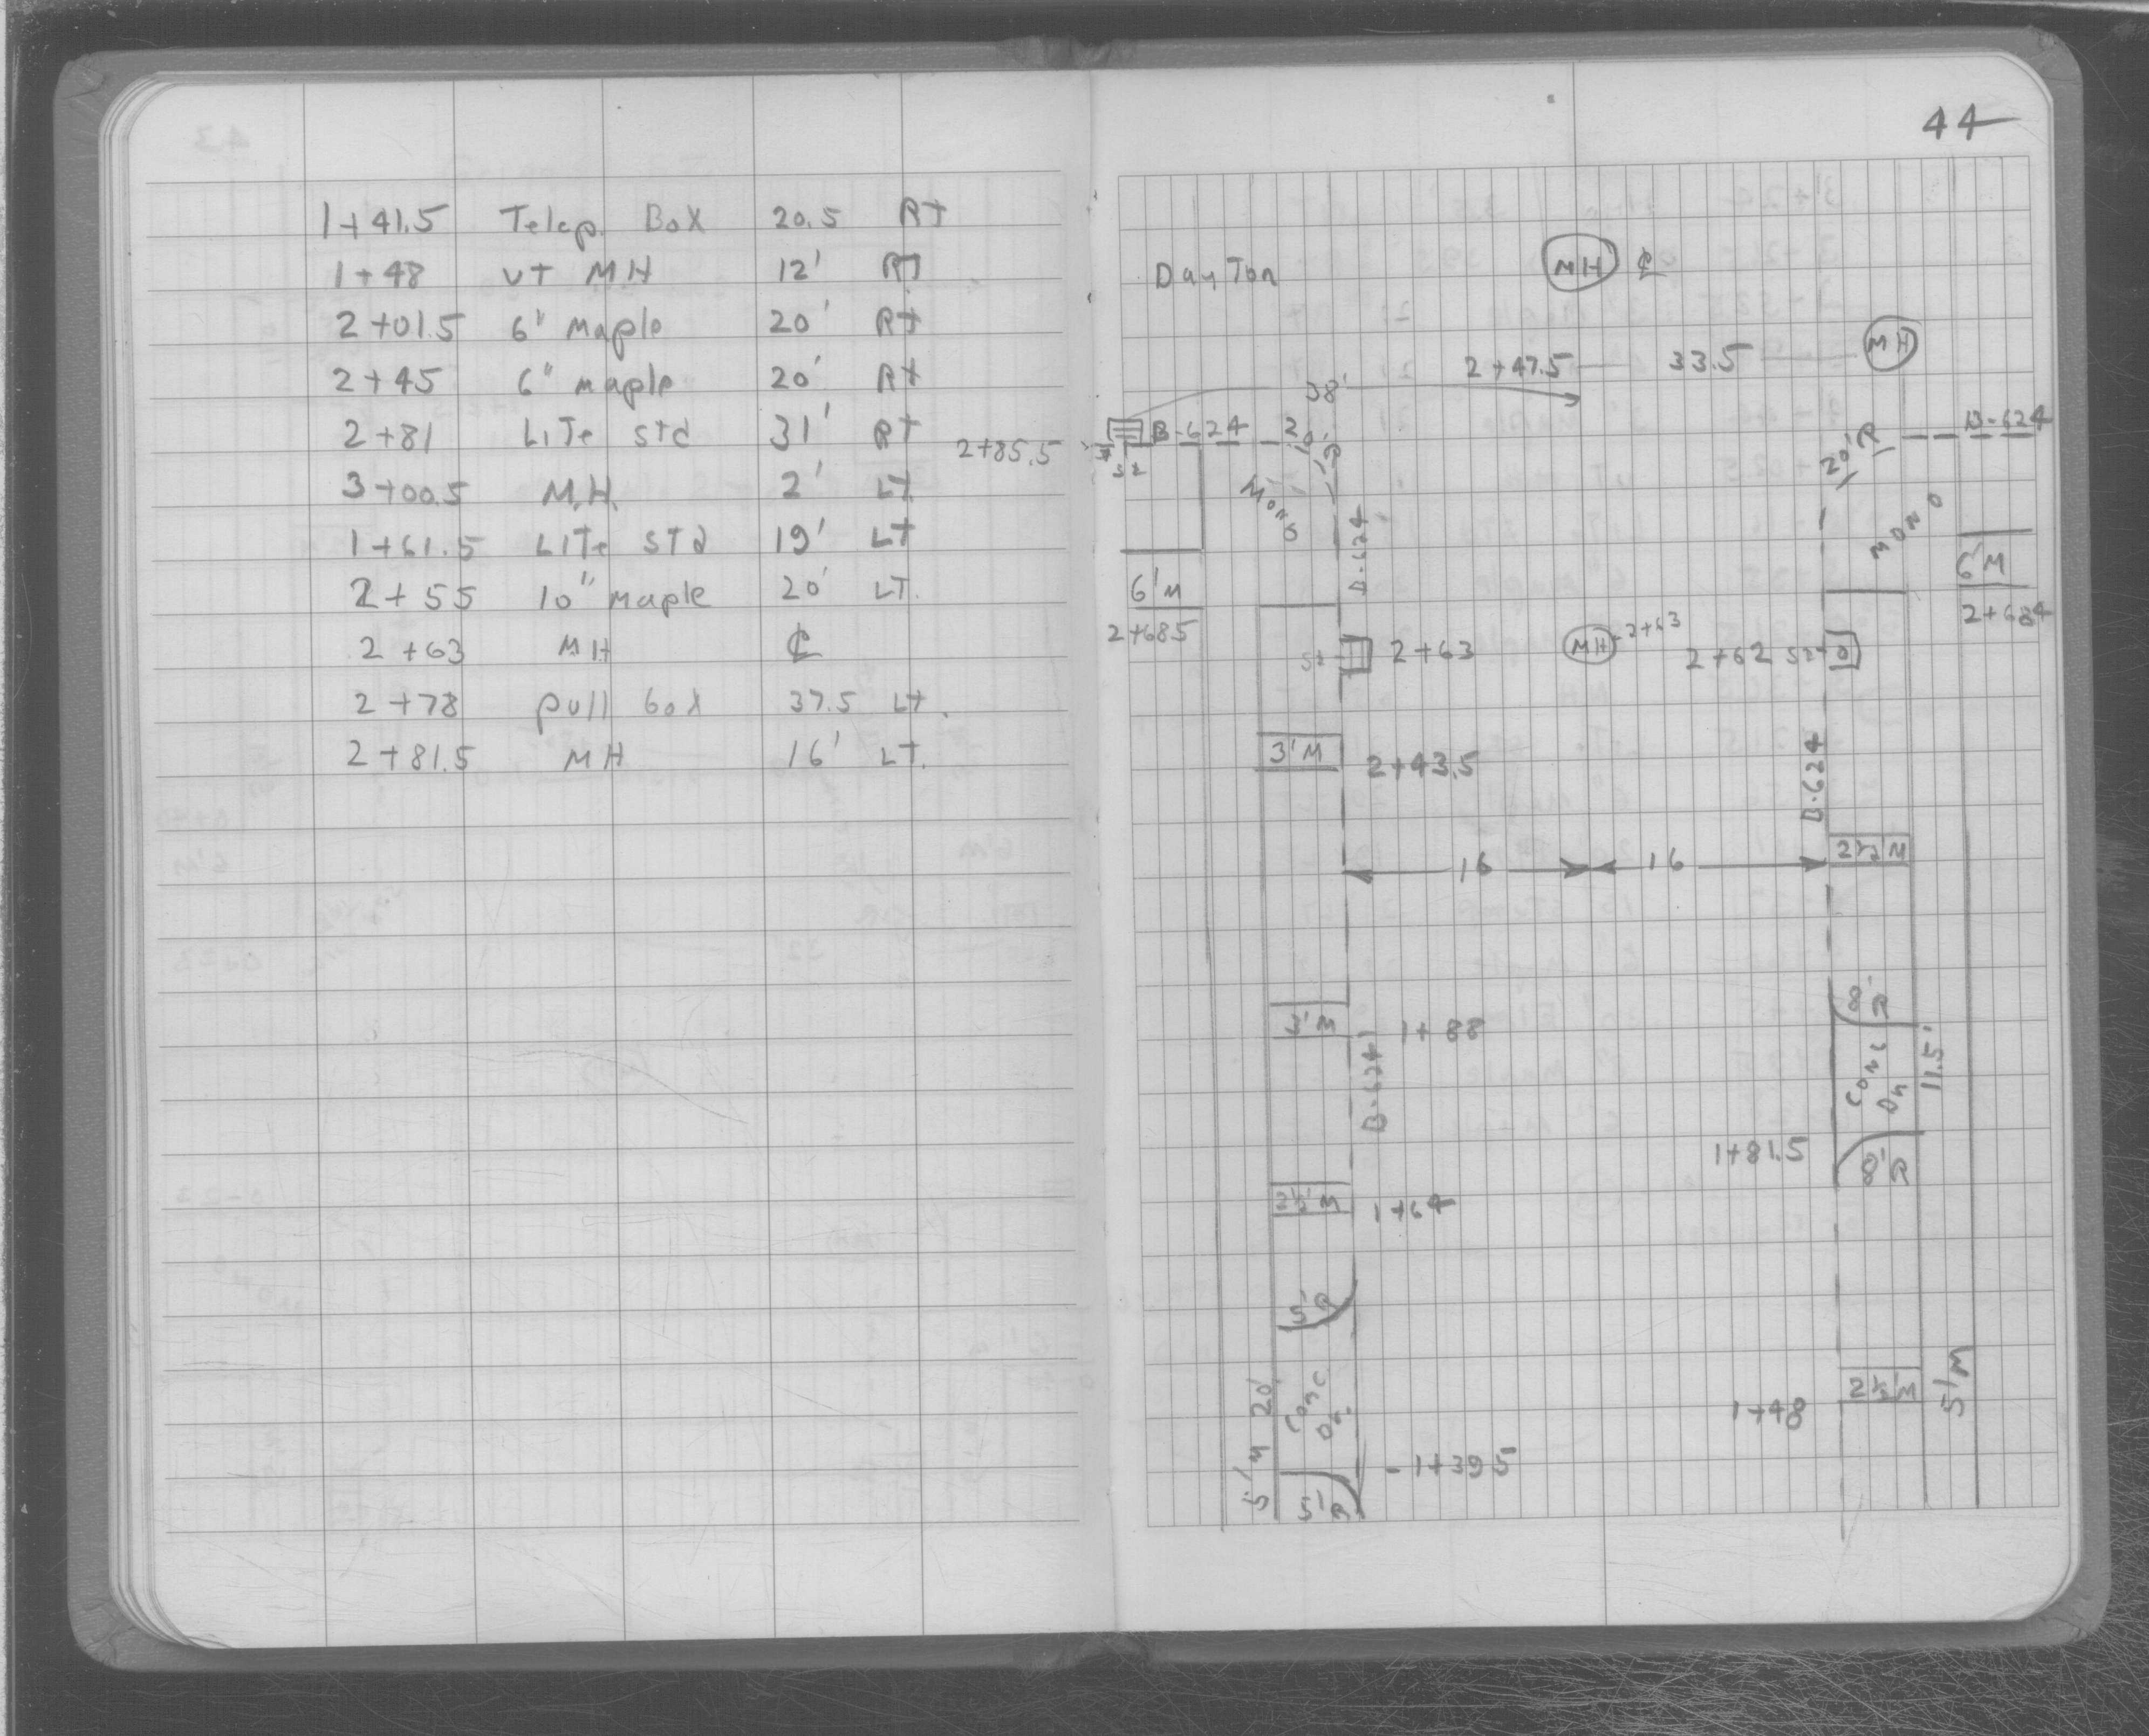 1+41.5 Telep. Box 20.5 RT
1+48 UT MH 12' RT
2+01.5 6" Maple 20' RT
2+45 6" maple 20' RT
2+81 LiTe STd 31' RT
3+00.5 M.H. 2' LT
1+61.5 LITe STd 19' LT
2+55 10" maple 20' LT.
2+63 MH ℄
2+78 pull box 37.5 LT.
2+81.5 MH 16' LT.
44
DayTon MH ℄
2+47.5 33.5 MH
38'
2+85.5 B-624 20'R 20'R B-624
S2
MONO B-624 MONO
6'M 6'M
2+685 2+684
S2 2+63 MH 2+63 2+62 S2
3'M 2+43.5 B-624
16 16 2½M
8'R
1+88
B-624 Conc Dr 11.5'
1+81.5 8'R
2½'M 1+64
5'R
5'M 20' Conc Dr. 1+48 2½'M 5'M
5'R - 1+395